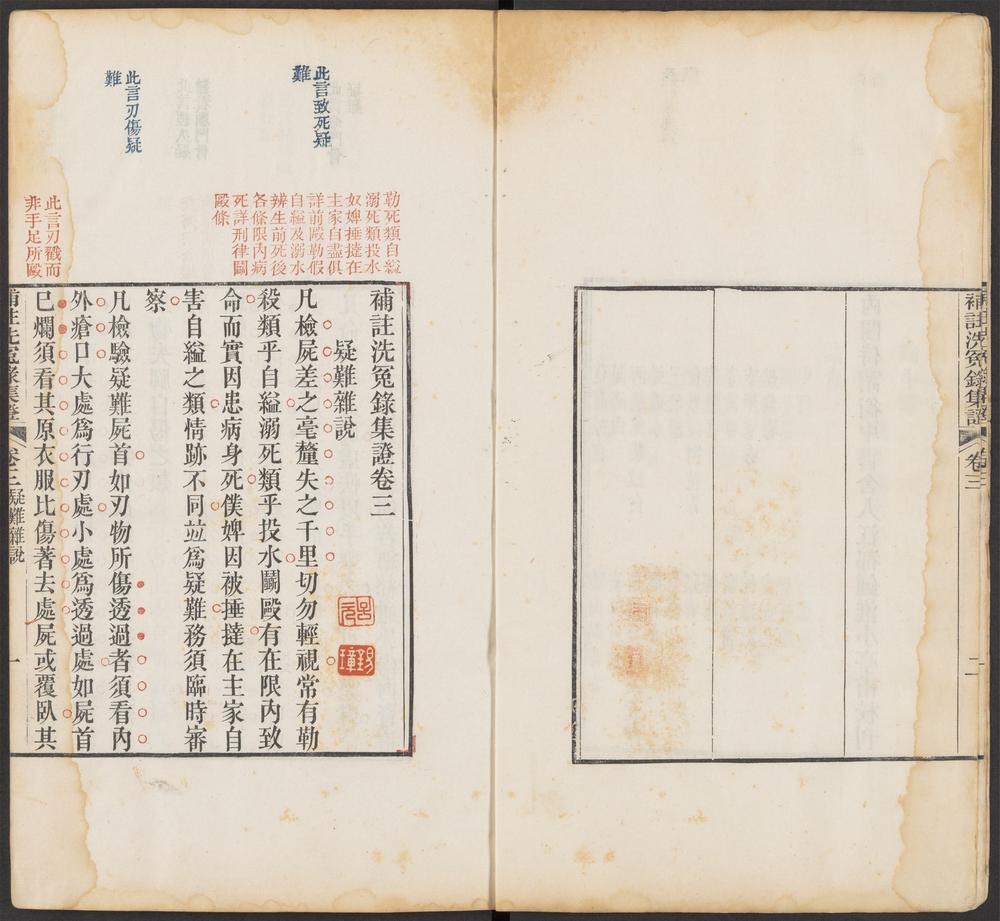 補註洗冤錄集證
卷三
二
此言致死疑
難
此言刃傷疑
難
勒死類自縊
溺死類投水
奴婢捶撻在
主家自盡俱
詳前毆勒假
自縊及溺水
辨生前死後
各條限內病
死詳刑律鬬
毆條
此言刃戳而
非手足所毆
補註洗冤錄集證卷三
疑難雜說
凡檢屍差之毫釐失之千里切勿輕視常有勒
殺類乎自縊溺死類乎投水鬬毆有在限內致
命而實因患病身死僕婢因被捶撻在主家自
害自縊之類情跡不同竝爲疑難務須臨時審
察
凡檢驗疑難屍首如刃物所傷透過者須看內
外瘡口大處爲行刃處小處爲透過處如屍首
已爛須看其原衣服比傷著去處屍或覆臥其
補註洗冤錄集證
卷三
疑難雜說
一
錫
璋